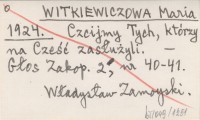 WITKIEWICZOWA Maria
1924. Czcijmy Tych, którzy
na Cześć zasłużyli. –
Głos Zakop. 2, nr 40-41.
Władysław Zamoyski.